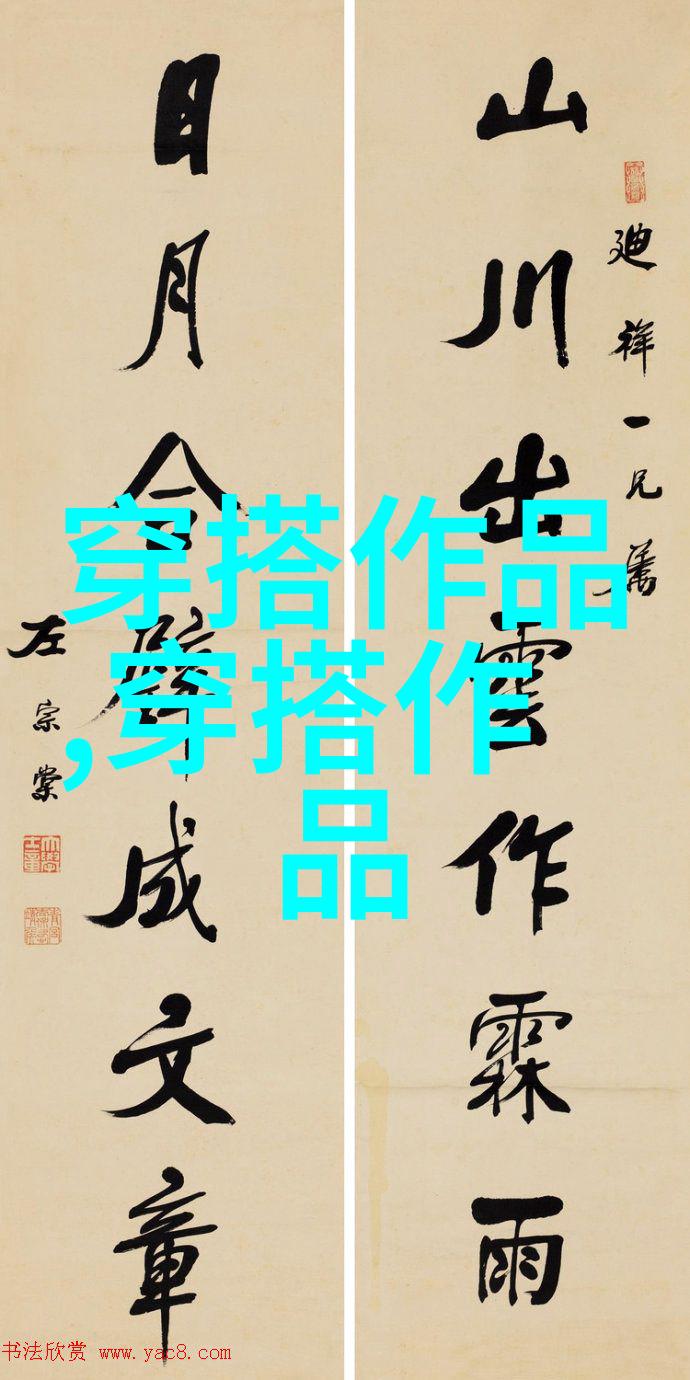 山川出雲作霖雨
廸祥一兄屬
日月合璧成文章
左宗棠
穿搭作品
,穿搭作
品
书法欣赏 www.yac8.com